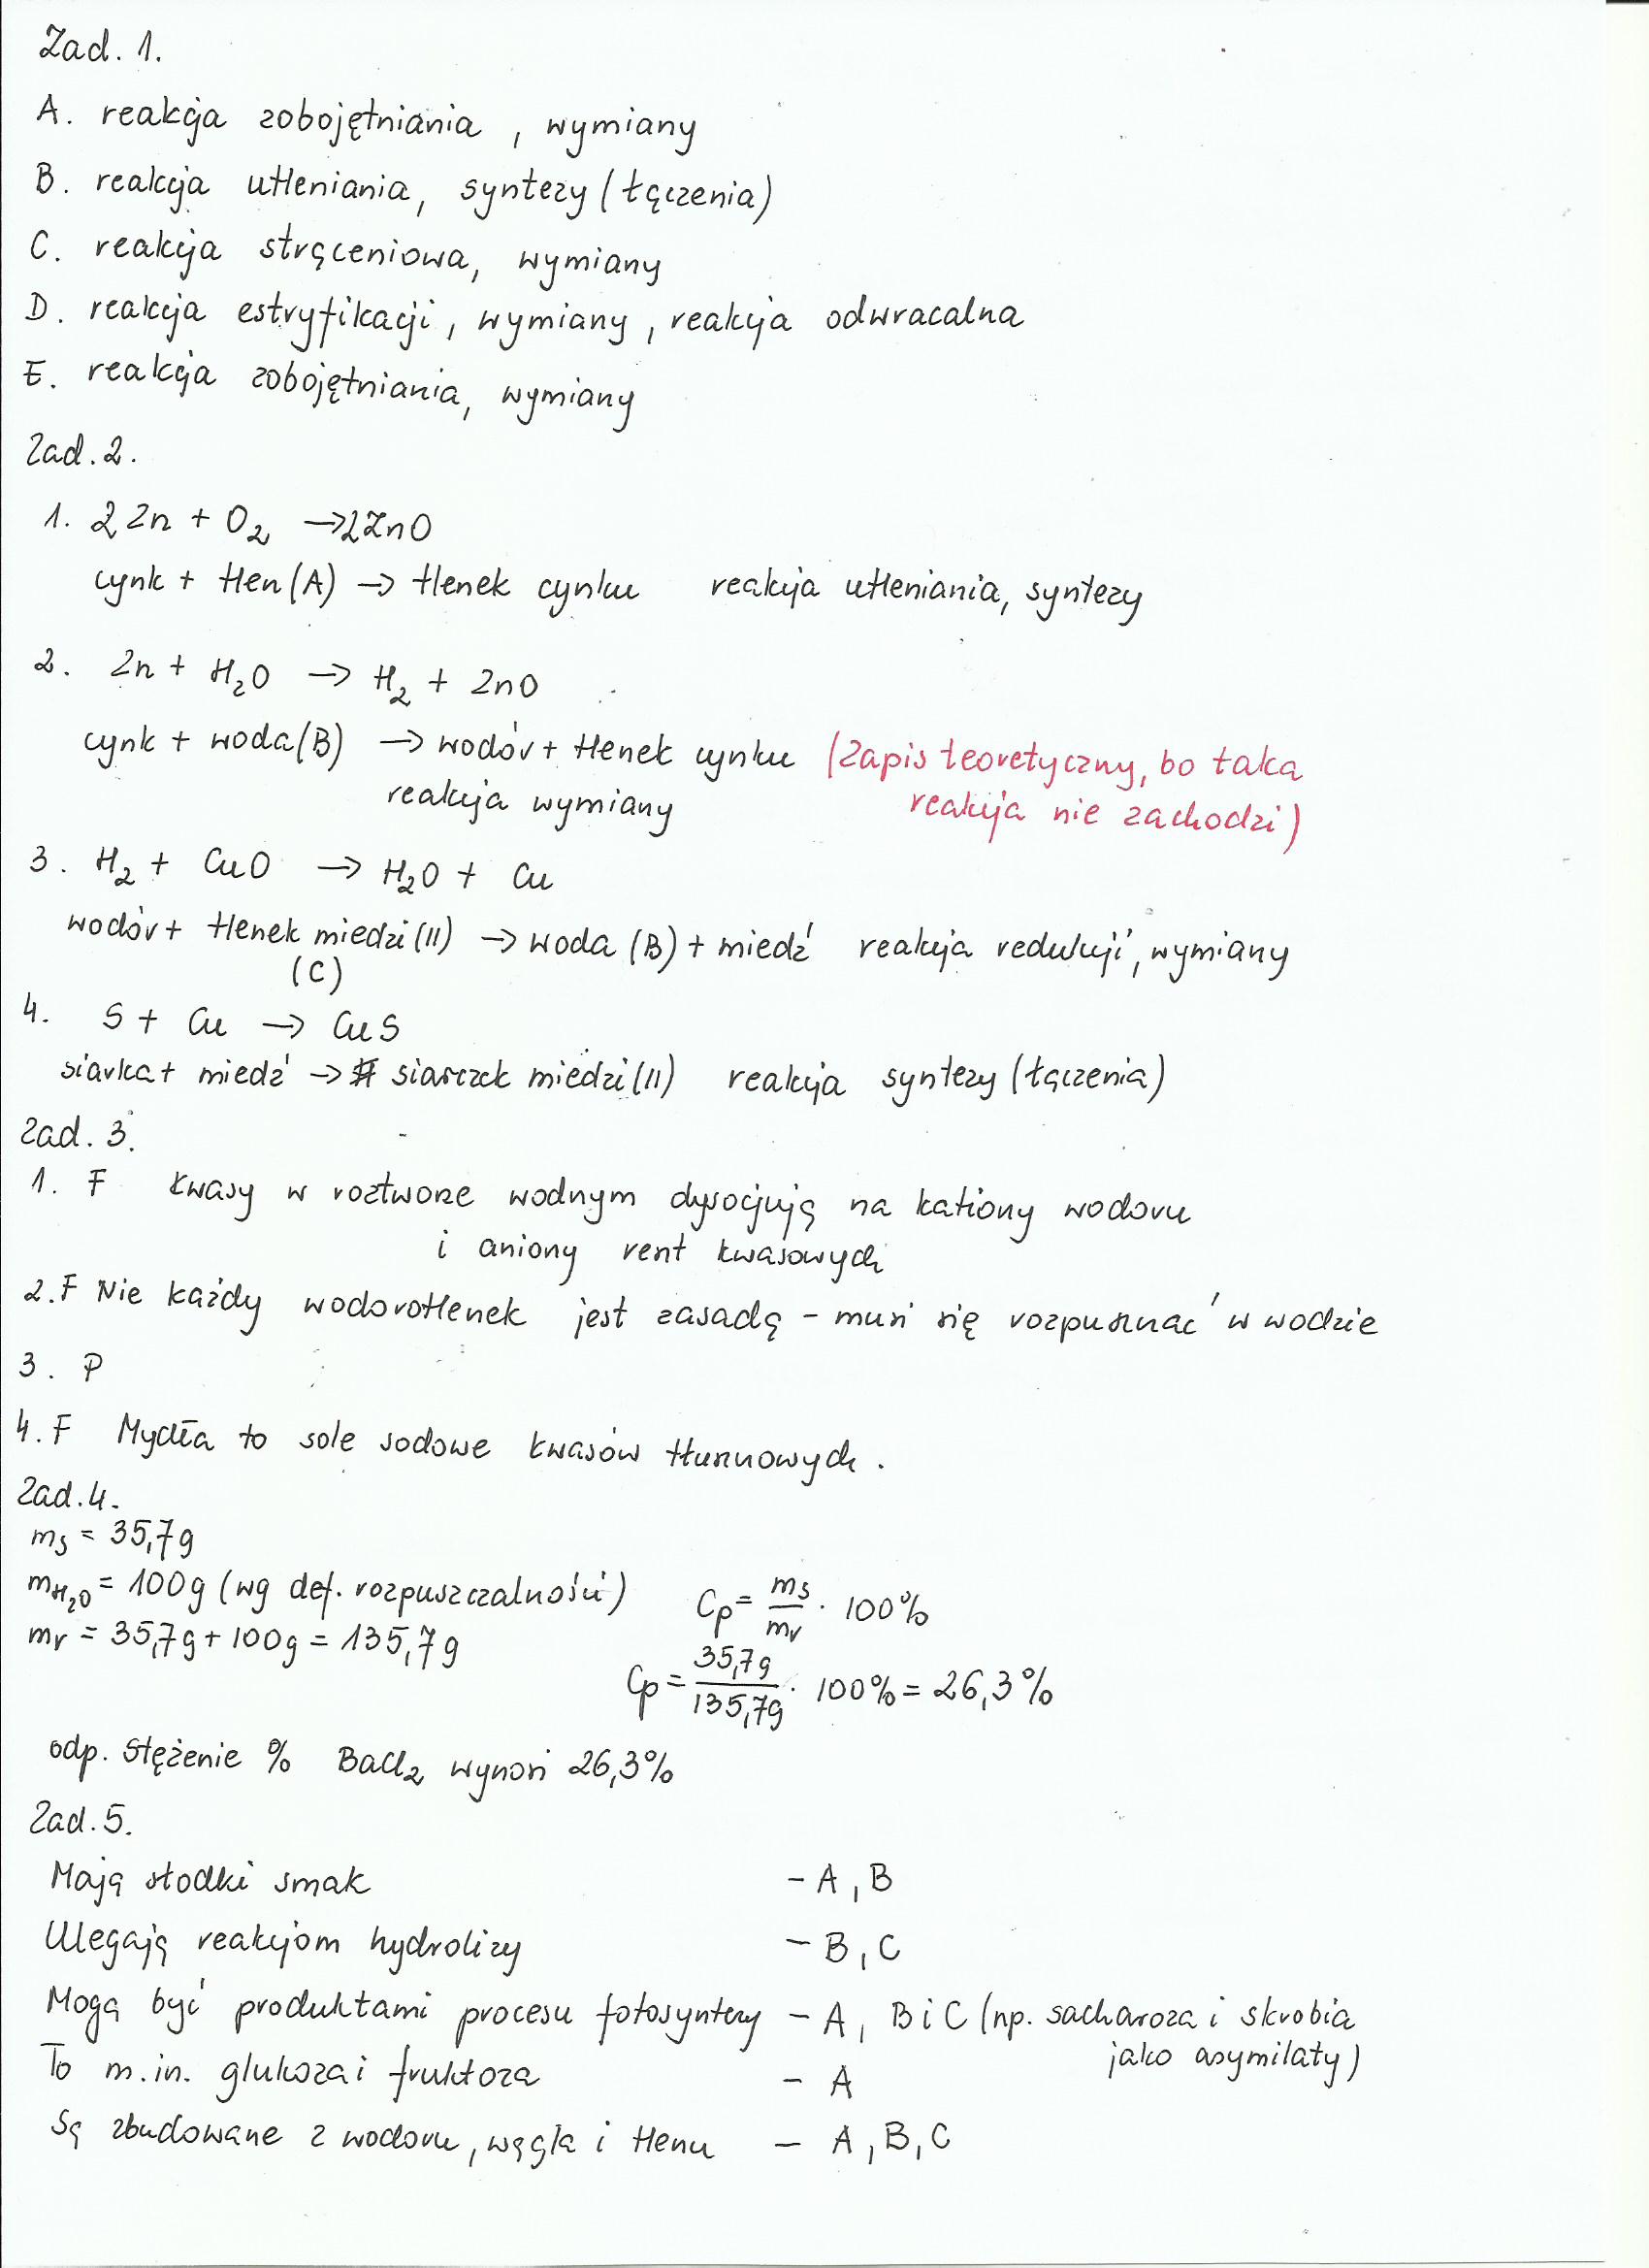 Zad. 1.
A. reakcja zobojętniania, wymiany
B. reakcja utleniania, syntezy (łączenia)
C. reakcja strąceniowa, wymiany
D. reakcja estryfikacji, wymiany, reakcja odwracalna
E. reakcja zobojętniania, wymiany
Zad. 2.
1. 2 Zn + O₂ → 2ZnO
cynk + tlen (A) → tlenek cynku reakcja utleniania, syntezy
2. Zn + H₂O → H₂ + ZnO
cynk + woda (B) → wodór + tlenek cynku (zapis teoretyczny, bo taka
reakcja wymiany reakcja nie zachodzi)
3. H₂ + CuO → H₂O + Cu
wodór + tlenek miedzi (II) → woda (B) + miedź reakcja redukcji, wymiany
(C)
4. S + Cu → CuS
siarka + miedź → siarczek miedzi (II) reakcja syntezy (łączenia)
Zad. 3.
1. F Kwasy w roztworze wodnym dysocjują na kationy wodoru
i aniony reszt kwasowych
2. F Nie każdy wodorotlenek jest zasadą - musi się rozpuszczać w wodzie
3. P
4. F Mydła to sole sodowe kwasów tłuszczowych.
Zad. 4.
ms = 35,7g
mH₂O = 100g (wg def. rozpuszczalności) Cp = ms/mr · 100%
mr = 35,7g + 100g = 135,7g
Cp = 35,7g/135,7g · 100% = 26,3%
odp. Stężenie % BaCl₂ wynosi 26,3%
Zad. 5.
Mają słodki smak - A, B
Ulegają reakcjom hydrolizy - B, C
Mogą być produktami procesu fotosyntezy - A, B i C (np. sacharoza i skrobia
jako asymilaty)
To m.in. glukoza i fruktoza - A
Są zbudowane z wodoru, węgla i tlenu - A, B, C